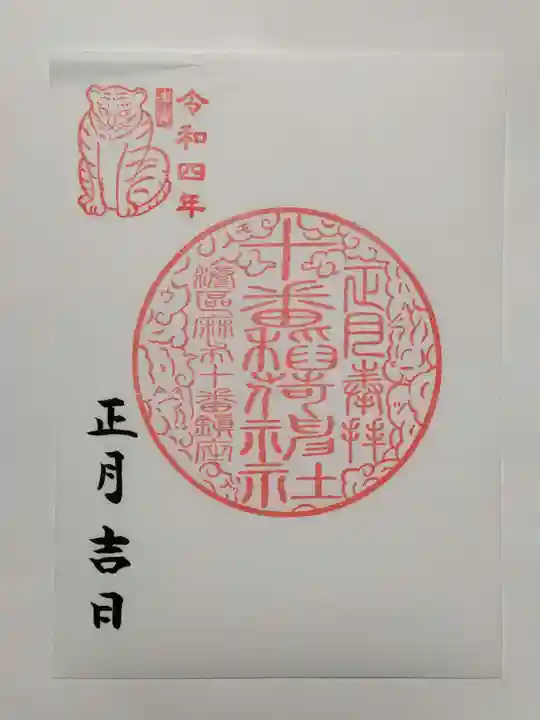 令和四年
正月奉拝
十番稲荷神社
港區麻布十番鎮座
正月吉日